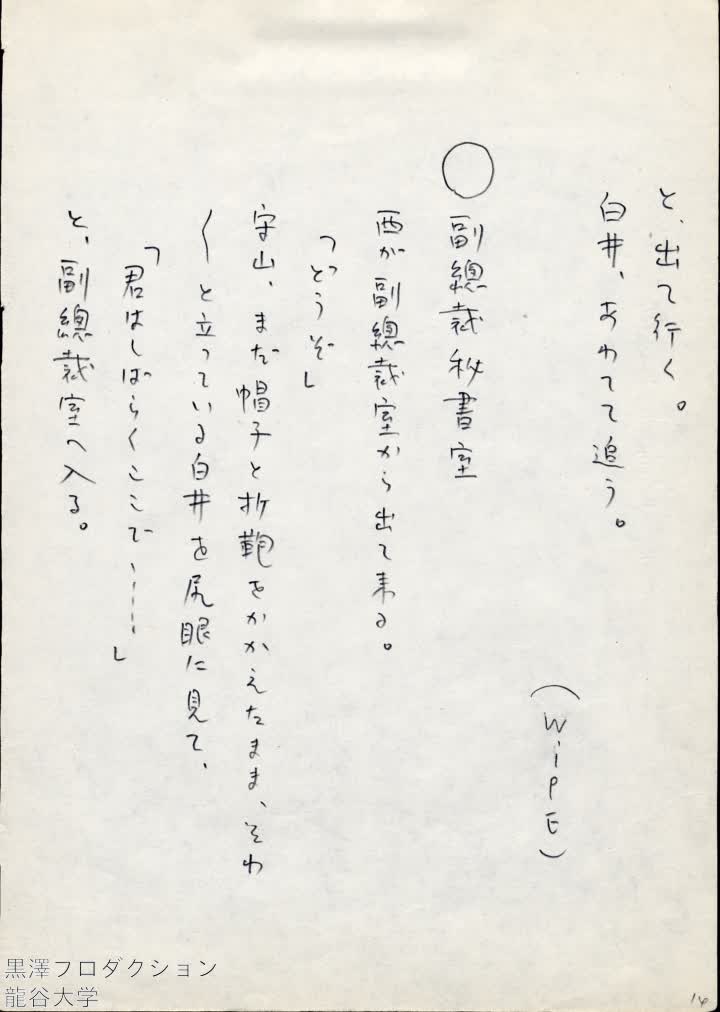 と、出て行く。
白井、あわてて追う。
（WiPE）
○副總裁秘書室
西が副總裁室から出て来る。
「どうぞ」
守山、まだ帽子と折鞄をかかえたまま、そわ
〱と立っている白井を尻眼に見て、
「君はしばらくここで、……」
と、副總裁室へ入る。
黒澤プロダクション
龍谷大学
14